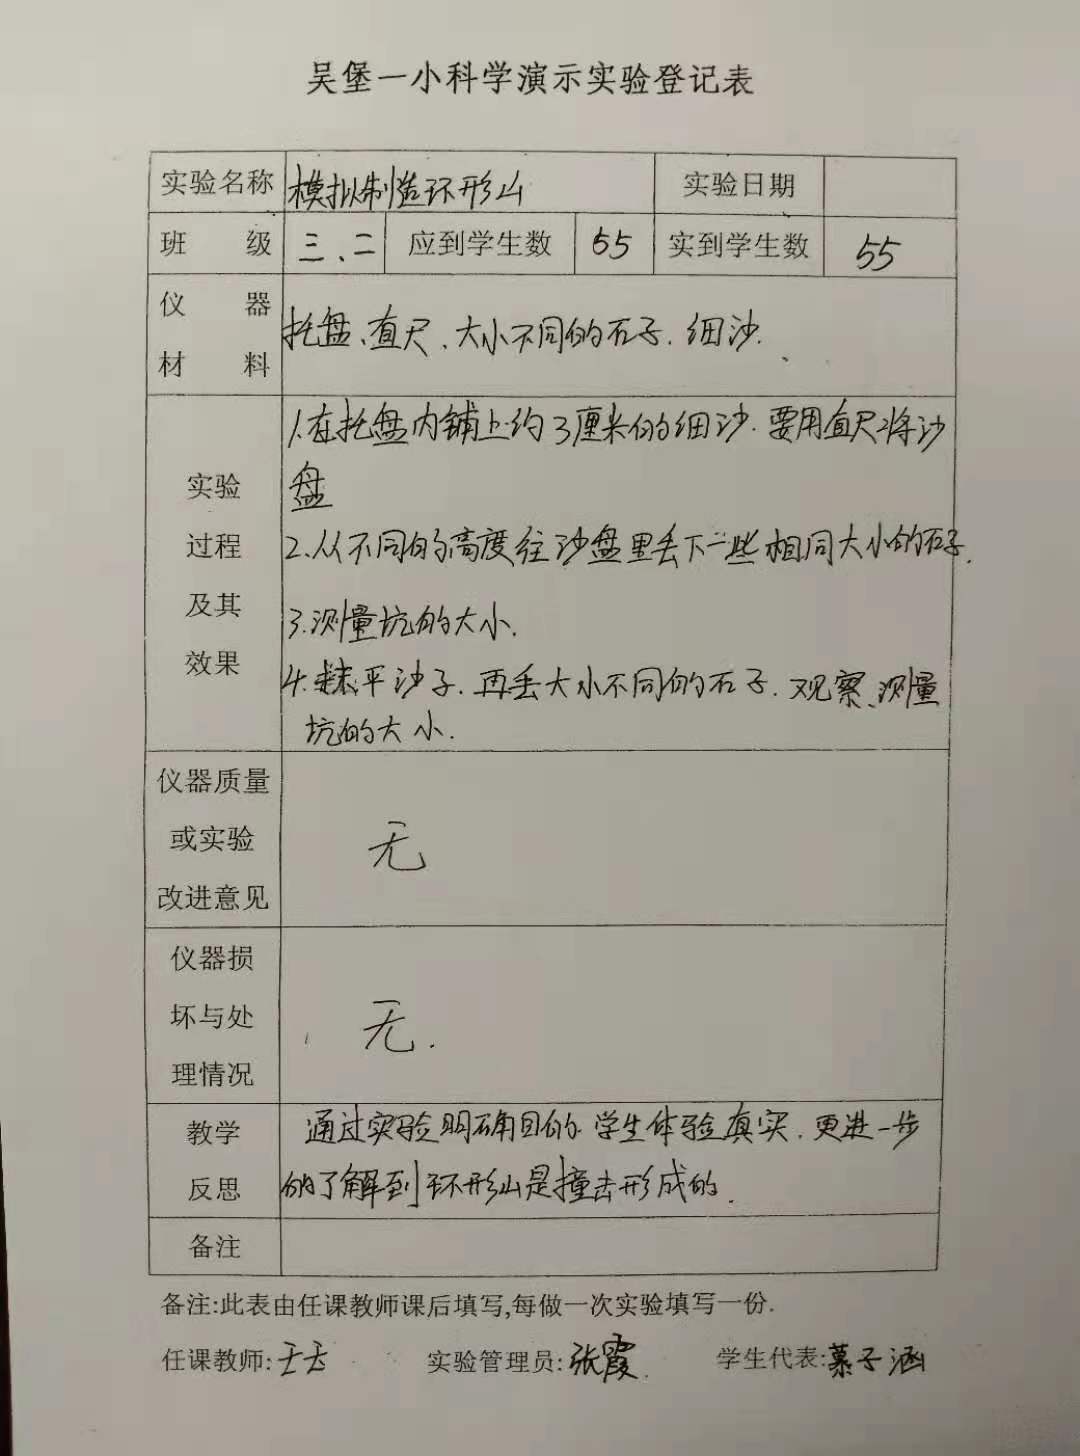 吴堡一小科学演示实验登记表
实验名称 模拟制造环形山 实验日期
班 级 三、二 应到学生数 55 实到学生数 55
仪 器
材 料
托盘、直尺、大小不同的石子.细沙.
实验
过程
及其
效果
1.在托盘内铺上约3厘米的细沙.要用直尺将沙
盘
2.从不同的高度往沙盘里丢下一些相同大小的石子.
3.测量坑的大小.
4.平沙子.再丢大小不同的石子.观察、测量
坑的大小.
仪器质量
或实验
改进意见
无
仪器损
坏与处
理情况
无.
教学
反思
通过实验明确目的.学生体验真实.更进一步
的了解到环形山是撞击形成的.
备注
备注:此表由任课教师课后填写,每做一次实验填写一份.
任课教师: 实验管理员:张霞. 学生代表:慕子涵